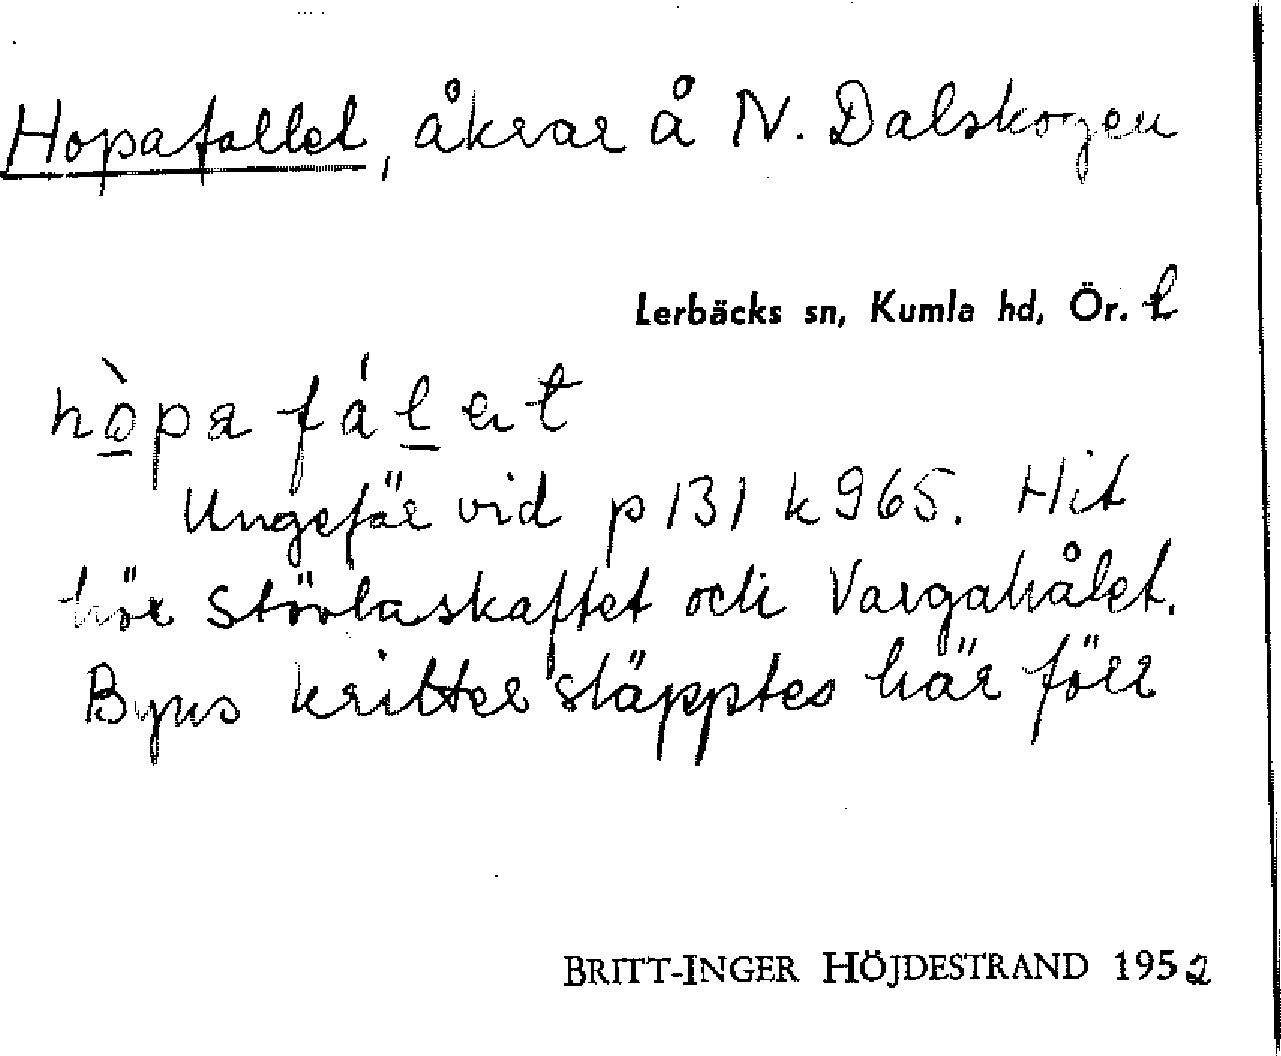 Hopafallet, åkrar å N. Dalskogen
Lerbäcks sn, Kumla hd, Ör. l
hò̱pa fáḻət
Ungefär vid p 131 k 965. Hit
hör Stövlaskaftet och Vargahålet.
Byns kritter släpptes här förr
BRITT-INGER HÖJDESTRAND 1952